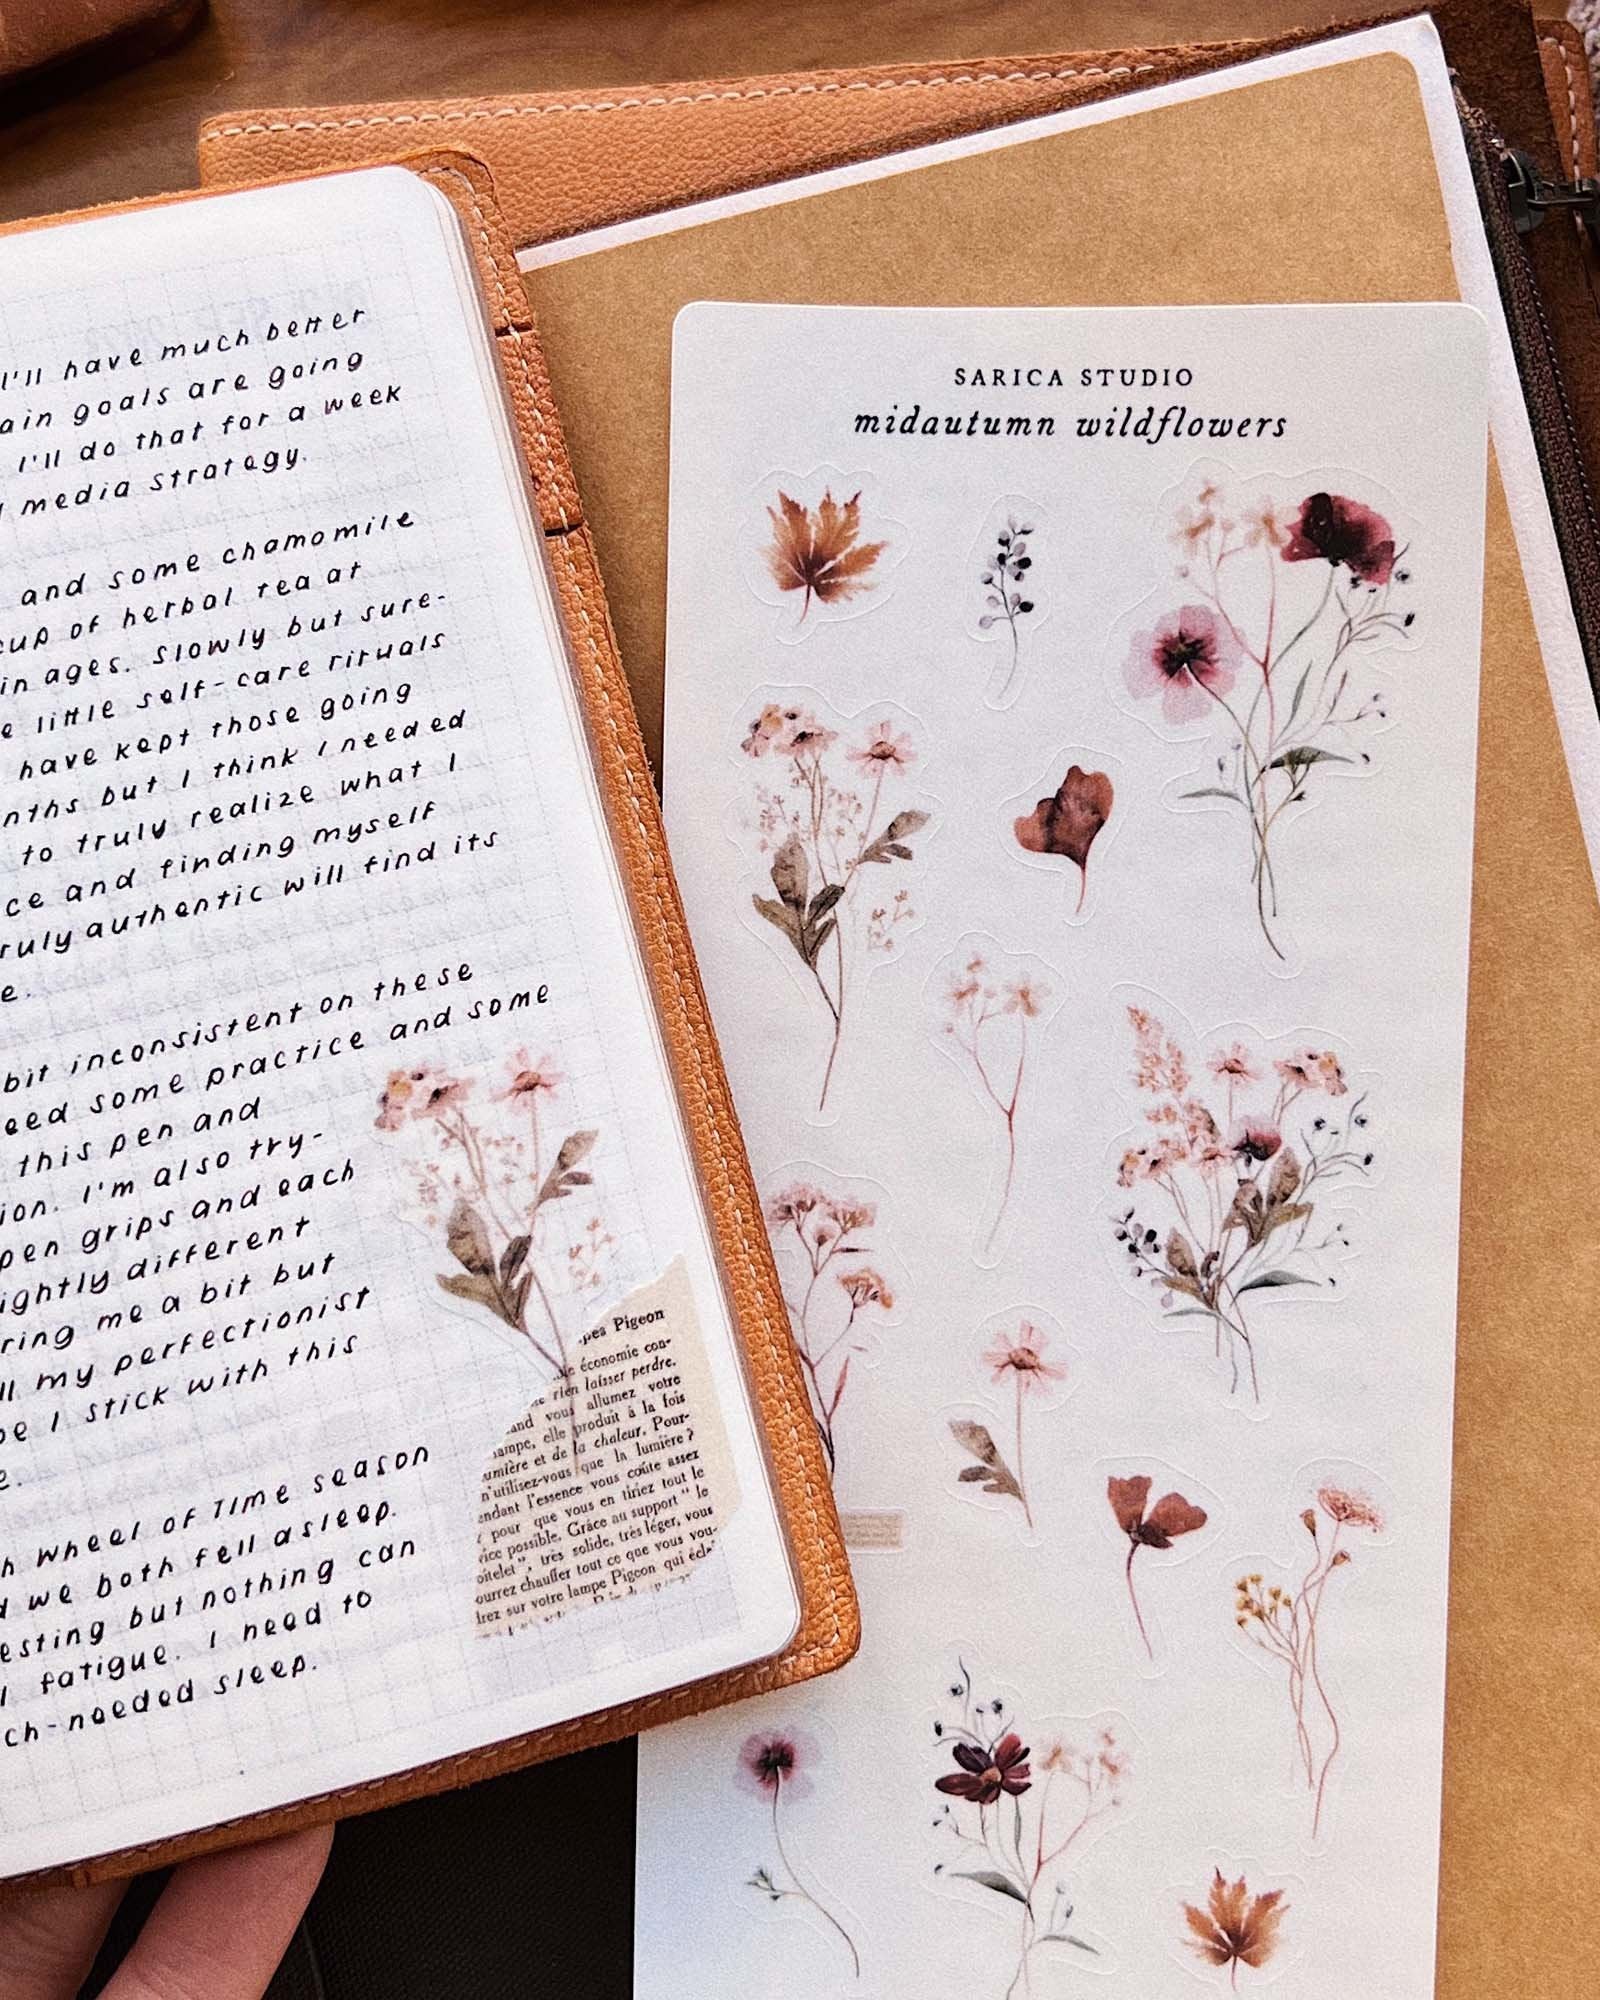 I'll have much better
ain goals are going
I'll do that for a week
media strategy.
and some chamomile
cup of herbal tea at
in ages. Slowly but sure-
e little self-care rituals
have kept those going
nths but I think I needed
to truly realize what I
ce and finding myself
ruly authentic will find its
e.
bit inconsistent on these
eed some practice and some
this pen and
ion. I'm also try-
pen grips and each
ightly different
ring me a bit but
ll my perfectionist
pe I stick with this
e.
h Wheel of Time season
d we both fell asleep.
esting but nothing can
l fatigue. I need to
ch-needed sleep.
pes Pigeon
économie con-
rien laisser perdre.
and vous allumez votre
lampe, elle produit à la fois
umière et de la chaleur. Pour-
n'utilisez-vous que la lumière?
endant l'essence vous coûte assez
pour que vous en tiriez tout le
vice possible. Grâce au support " le
oitelet ", très solide, très léger, vous
ourrez chauffer tout ce que vous vou-
drez sur votre lampe Pigeon qui écl
SARICA STUDIO
midautumn wildflowers